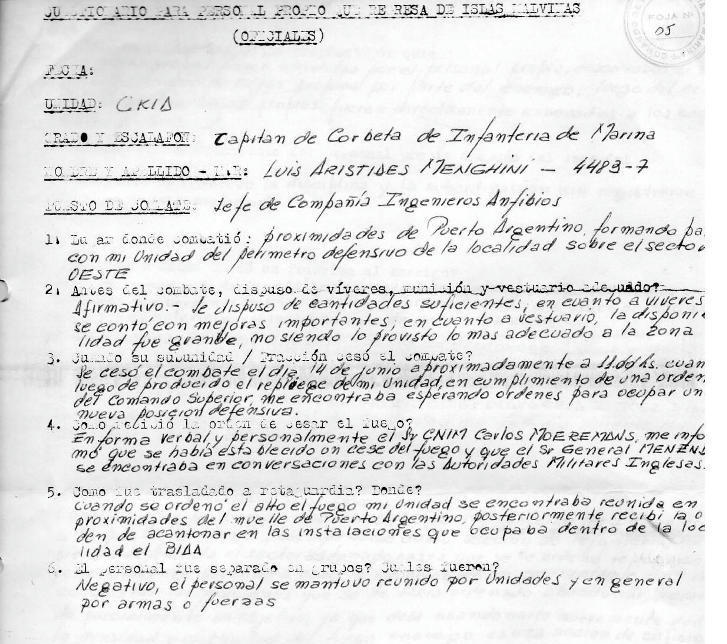 CUESTIONARIO PARA PERSONAL PROPIO QUE REGRESA DE ISLAS MALVINAS
(OFICIALES)
FOJA Nº
05
FECHA:
UNIDAD: CKIA
GRADO Y ESCALAFON: Capitan de Corbeta de Infanteria de Marina
NOMBRE Y APELLIDO - M.R: LUIS ARISTIDES MENGHINI - 4483-7
PUESTO DE COMBATE: Jefe de Compañía Ingenieros Anfibios
1. Lugar donde combatió: proximidades de Puerto Argentino, formando pa
con mi Unidad del perimetro defensivo de la localidad sobre el sector
OESTE
2. Antes del combate, dispuso de víveres, munición y vestuario adecuado?
Afirmativo.- Se dispuso de cantidades suficientes, en cuanto a viveres
se contó con mejoras importantes, en cuanto a vestuario, la disponi
lidad fue grande, no siendo lo provisto lo mas adecuado a la zona
3. Cuando su subunidad / Fracción cesó el combate?
Se cesó el combate el día 14 de junio aproximadamente a 11.00 hs. cuan
luego de producido el repliege de mi Unidad, en cumplimiento de una orden
del Comando Superior, me encontraba esperando ordenes para ocupar un
nueva posicion defensiva.
4. Como recibió la orden de cesar el fuego?
En forma verbal y personalmente el Sr CNIM Carlos MOEREMANS, me info
mó que se habia establecido un cese del fuego y que el Sr General MENEN
se encontraba en conversaciones con las Autoridades Militares Inglesas.
5. Como fue trasladado a retaguardia? Donde?
Cuando se ordenó el alto el fuego mi Unidad se encontraba reunida en
proximidades del muelle de Puerto Argentino, posteriormente recibí la o
den de acantonar en las instalaciones que ocupaba dentro de la loc
lidad el BIAA
6. El personal fue separado en grupos? Cuales fueron?
Negativo, el personal se mantuvo reunido por Unidades y en general
por armas o fuerzas